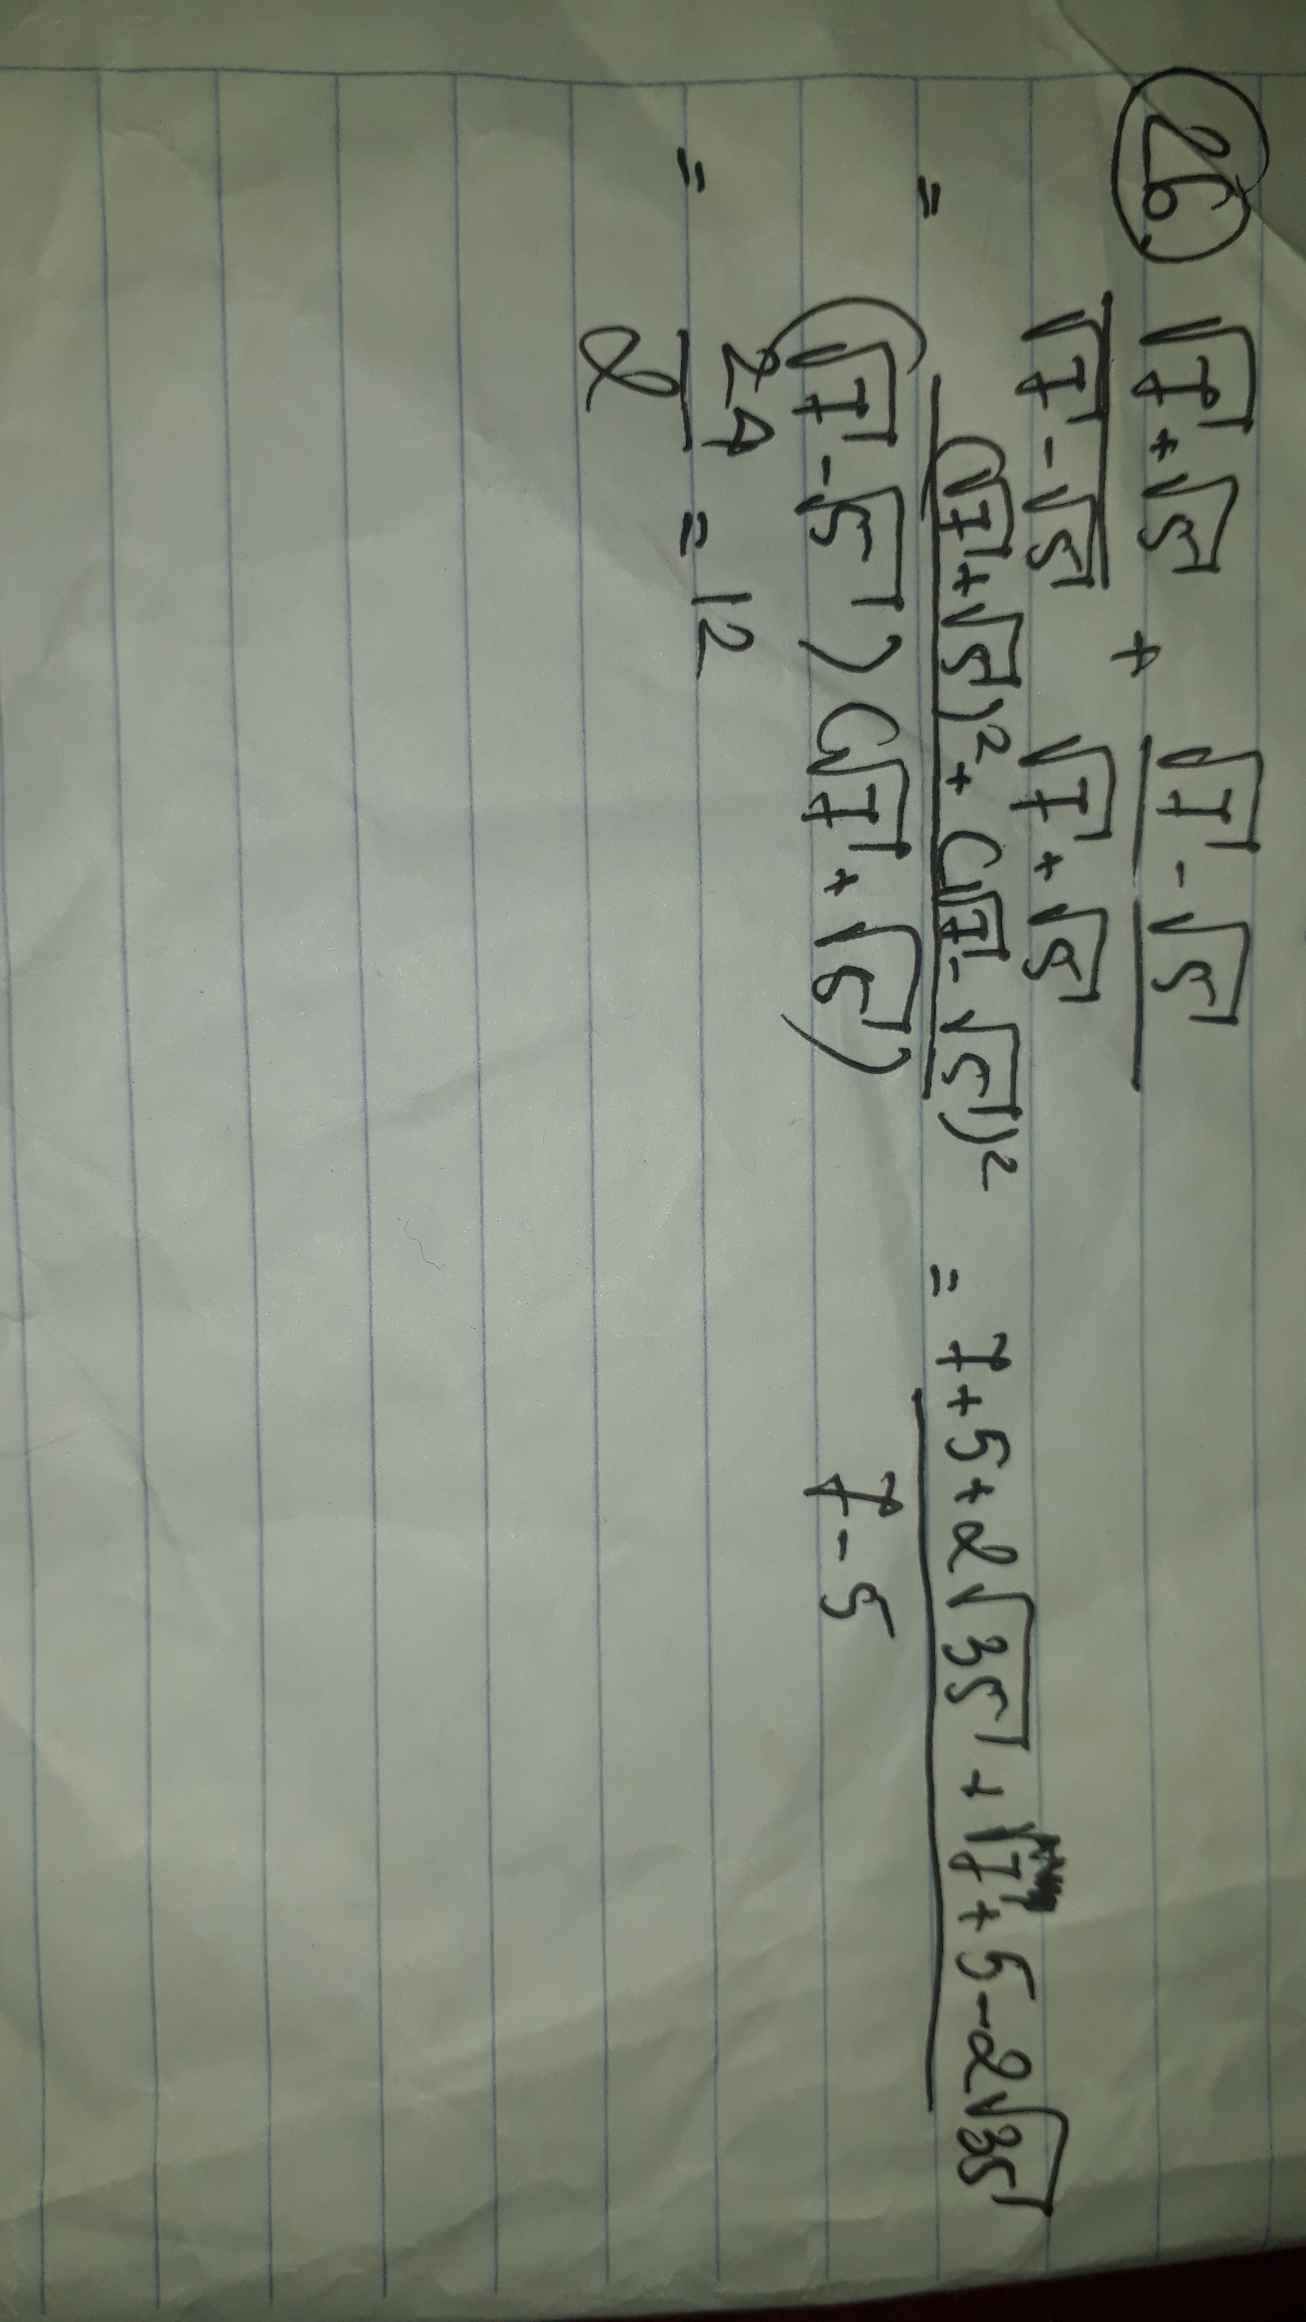 26. (√7 + √5)/(√7 - √5) + (√7 - √5)/(√7 + √5)
= ((√7 + √5)² + (√7 - √5)²)/((√7 - √5)(√7 + √5)) = (7 + 5 + 2√35 + √7 + 5 - 2√35)/(7 - 5)
= 24/2 = 12